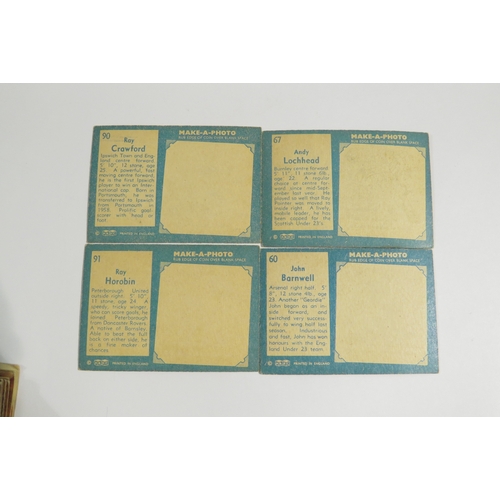 90
Ray
Crawford
Ipswich Town and Eng-
land centre forward.
5' 10", 12 stone, age
25. A powerful, fast
moving centre forward,
he is the first Ipswich
player to win an Inter-
national cap. Born in
Portsmouth, he was
transferred to Ipswich
from Portsmouth in
1958. Prolific goal-
scorer with head or
foot.
MAKE-A-PHOTO
RUB EDGE OF COIN OVER BLANK SPACE
PRINTED IN ENGLAND
67
Andy
Lochhead
Burnley centre forward.
5' 11", 11 stone 6lb.,
age 22. A regular
choice at centre for-
ward since mid-Sept-
ember last year when
Ray Pointer was moved
to inside right. A lively,
mobile leader, he has
been chosen for the
Scottish Under 23's.
MAKE-A-PHOTO
RUB EDGE OF COIN OVER BLANK SPACE
PRINTED IN ENGLAND
91
Ray
Horobin
Peterborough United
outside right. 5' 10",
11 stone, age 24. A
speedy, tricky winger,
who can score goals, he
joined Peterborough
from Doncaster Rovers.
A native of Barnsley.
Able to beat the full
back on either side, he
is a fine maker of
chances.
MAKE-A-PHOTO
RUB EDGE OF COIN OVER BLANK SPACE
PRINTED IN ENGLAND
60
John
Barnwell
Arsenal right half. 5'
8", 12 stone 4lb., age
23. Another "Geordie",
John began as an in-
side forward, and
switched very success-
fully to wing half last
season. Industrious
and fast, John has won
honours with the Eng-
land Under 23 team.
MAKE-A-PHOTO
RUB EDGE OF COIN OVER BLANK SPACE
PRINTED IN ENGLAND